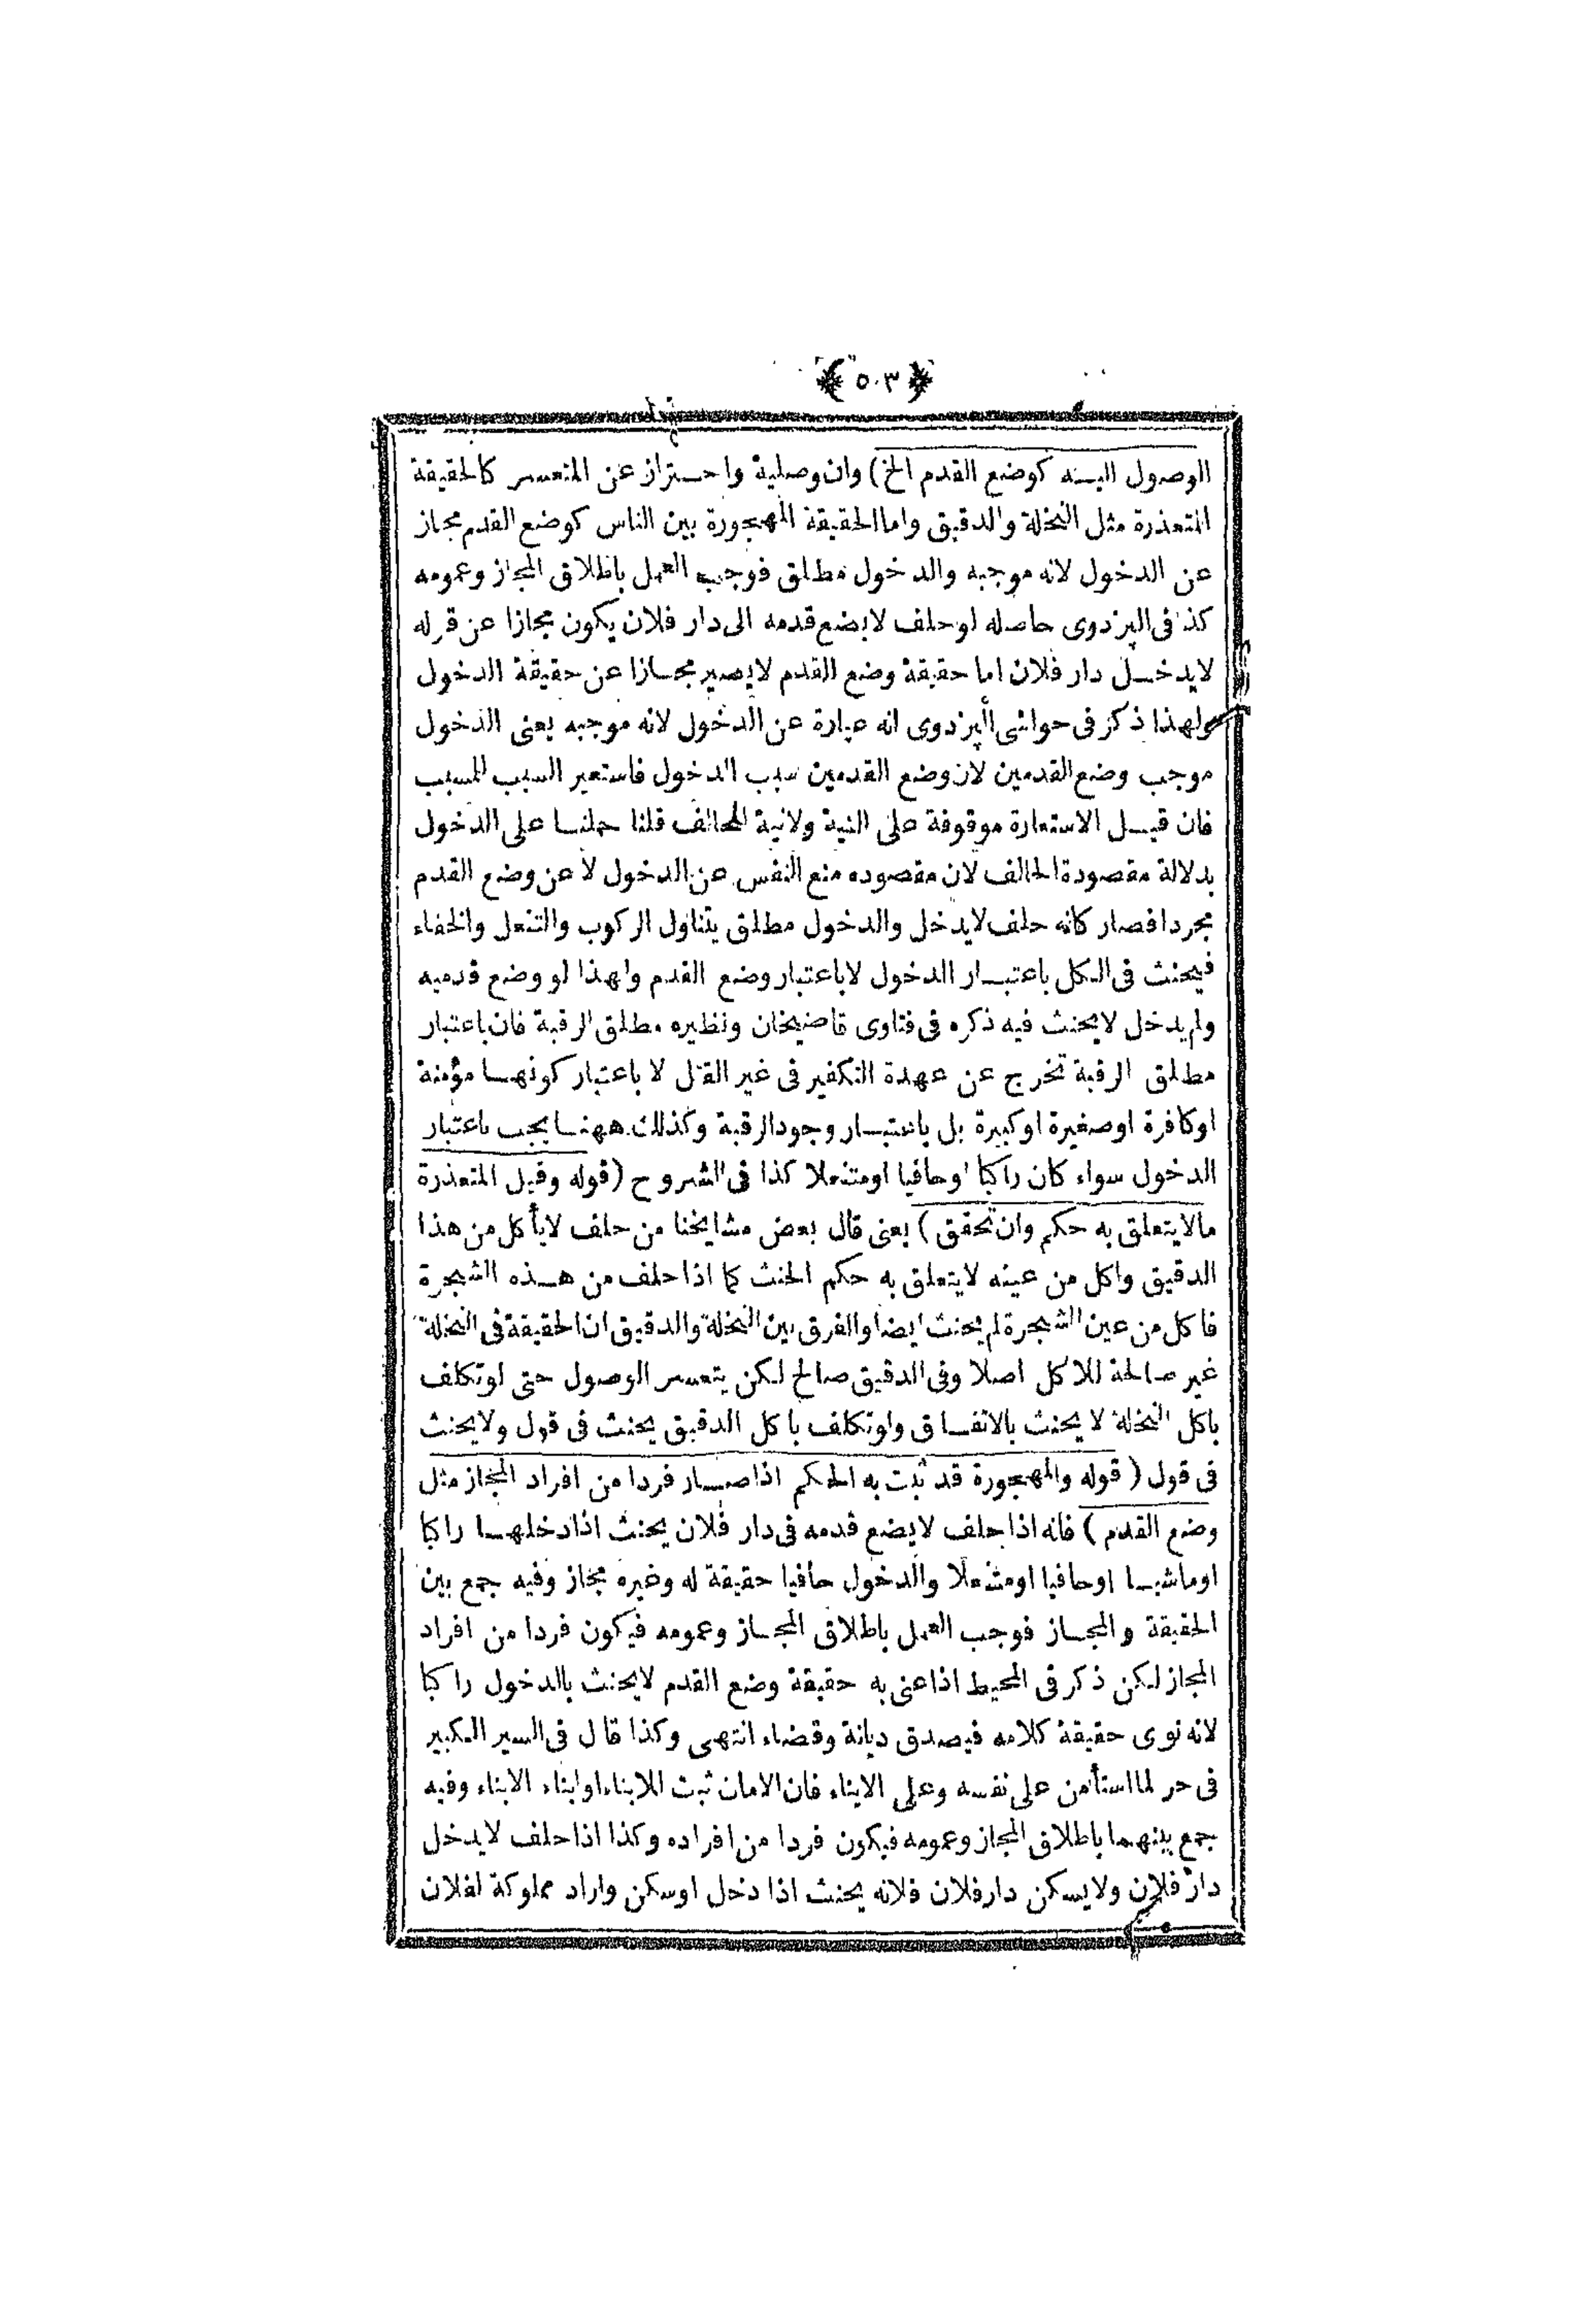 ﴿٥٠٣﴾
الوصول اليه كوضع القدم الخ) وان وصلية واحتراز عن المتعسر كالحقيقة
المتعذرة مثل النخلة والدقيق واما الحقيقة المهجورة بين الناس كوضع القدم مجاز
عن الدخول لانه موجبه والدخول مطلق فوجب العمل باطلاق المجاز وعمومه
كذا فى البزدوى حاصله لو حلف لا يضع قدمه الى دار فلان يكون مجازا عن قوله
لا يدخل دار فلان اما حقيقة وضع القدم لا يصير مجازا عن حقيقة الدخول
ولهذا ذكر فى حواشى البزدوى انه عبارة عن الدخول لانه موجبه يعنى الدخول
موجب وضع القدمين لان وضع القدمين سبب الدخول فاستعير السبب للمسبب
فان قيل الاستعارة موقوفة على النية ولا نية للحالف قلنا حملنا على الدخول
بدلالة مقصودة الحالف لان مقصوده منع النفس عن الدخول لا عن وضع القدم
مجردا فصار كانه حلف لا يدخل والدخول مطلق يتناول الركوب والتنعل والخفاء
فيحنث فى الكل باعتبار الدخول لا باعتبار وضع القدم ولهذا لو وضع قدميه
ولم يدخل لا يحنث فيه ذكره فى فتاوى قاضيخان ونظيره مطلق الرقبة فان باعتبار
مطلق الرقبة تخرج عن عهدة التكفير فى غير القتل لا باعتبار كونها مؤمنة
او كافرة او صغيرة او كبيرة بل باعتبار وجود الرقبة وكذلك ههنا يجب باعتبار
الدخول سواء كان راكبا او حافيا او متنعلا كذا فى الشروح (قوله وقيل المتعذرة
مالا يتعلق به حكم وان تحقق) يعنى قال بعض مشايخنا من حلف لا يأكل من هذا
الدقيق واكل من عينه لا يتعلق به حكم الحنث كما اذا حلف من هذه الشجرة
فاكل من عين الشجرة لم يحنث ايضا والفرق بين النخلة والدقيق ان الحقيقة فى النخلة
غير صالحة للاكل اصلا وفى الدقيق صالح لكن يتعسر الوصول حتى لو تكلف
باكل النخلة لا يحنث بالاتفاق ولو تكلف باكل الدقيق يحنث فى قول ولا يحنث
فى قول (قوله والمهجورة قد ثبت به الحكم اذا صار فردا من افراد المجاز مثل
وضع القدم) فانه اذا حلف لا يضع قدمه فى دار فلان يحنث اذا دخلها راكبا
او ماشيا او حافيا او متنعلا والدخول حافيا حقيقة له وغيره مجاز وفيه جمع بين
الحقيقة والمجاز فوجب العمل باطلاق المجاز وعمومه فيكون فردا من افراد
المجاز لكن ذكر فى المحيط اذا عنى به حقيقة وضع القدم لا يحنث بالدخول راكبا
لانه نوى حقيقة كلامه فيصدق ديانة وقضاء انتهى وكذا قال فى السير الكبير
فى حر لما استأمن على نفسه وعلى الابناء فان الامان ثبت للابناء او ابناء الابناء وفيه
جمع بينهما باطلاق المجاز وعمومه فيكون فردا من افراده وكذا اذا حلف لا يدخل
دار فلان ولا يسكن دار فلان فلانه يحنث اذا دخل او سكن واراد مملوكة لفلان